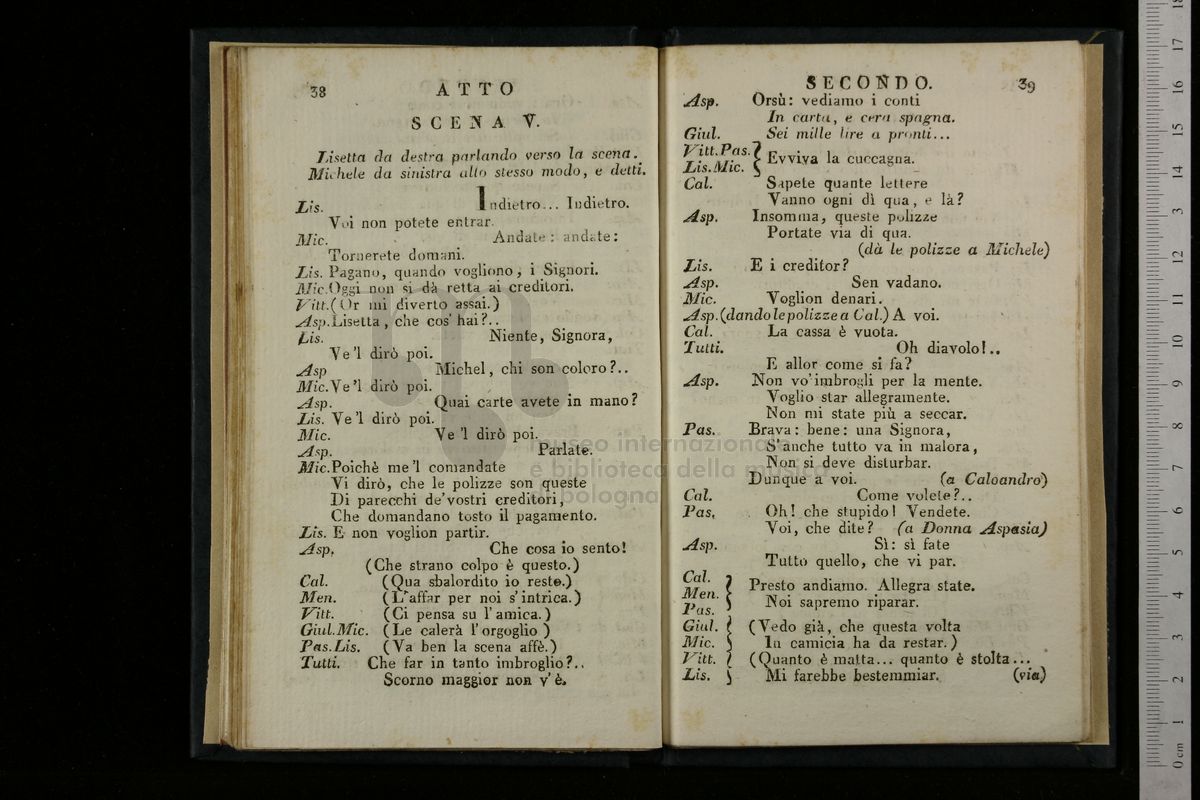 38
ATTO
SCENA V.
Lisetta da destra parlando verso la scena.
Michele da sinistra allo stesso modo, e detti.
Lis. Indietro... Indietro.
Voi non potete entrar.
Mic. Andate: andate:
Tornerete domani.
Lis. Pagano, quando vogliono, i Signori.
Mic. Oggi non si dà retta ai creditori.
Vitt. (Or mi diverto assai.)
Asp. Lisetta, che cos' hai?..
Lis. Niente, Signora,
Ve'l dirò poi.
Asp Michel, chi son coloro?..
Mic. Ve'l dirò poi.
Asp. Quai carte avete in mano?
Lis. Ve'l dirò poi.
Mic. Ve 'l dirò poi.
Asp. Parlate.
Mic. Poichè me'l comandate
Vi dirò, che le polizze son queste
Di parecchi de' vostri creditori,
Che domandano tosto il pagamento.
Lis. E non voglion partir.
Asp. Che cosa io sento!
(Che strano colpo è questo.)
Cal. (Qua sbalordito io resto.)
Men. (L'affar per noi s'intrica.)
Vitt. (Ci pensa su l'amica.)
Giul. Mic. (Le calerà l'orgoglio )
Pas. Lis. (Va ben la scena affè.)
Tutti. Che far in tanto imbroglio?..
Scorno maggior non v'è.
SECONDO.
39
Asp. Orsù: vediamo i conti
In carta, e cera spagna.
Giul. Sei mille lire a pronti...
Vitt. Pas. }
Lis. Mic. } Evviva la cuccagna.
Cal. Sapete quante lettere
Vanno ogni dì qua, e là?
Asp. Insomma, queste polizze
Portate via di qua.
(dà le polizze a Michele)
Lis. E i creditor?
Asp. Sen vadano.
Mic. Voglion denari.
Asp. (dando le polizze a Cal.) A voi.
Cal. La cassa è vuota.
Tutti. Oh diavolo!..
E allor come si fa?
Asp. Non vo' imbrogli per la mente.
Voglio star allegramente.
Non mi state più a seccar.
Pas. Brava: bene: una Signora,
S'anche tutto va in malora,
Non si deve disturbar.
Dunque a voi. (a Caloandro)
Cal. Come volete?..
Pas. Oh! che stupido! Vendete.
Voi, che dite? (a Donna Aspasia)
Asp. Sì: sì fate
Tutto quello, che vi par.
Cal. }
Men. } Presto andiamo. Allegra state.
Pas. } Noi sapremo riparar.
Giul. { (Vedo già, che questa volta
Mic. } In camicia ha da restar.)
Vitt. { (Quanto è matta... quanto è stolta...
Lis. } Mi farebbe bestemmiar. (via)
museo internazionale
e biblioteca della musica
bologna
0 cm 1 2 3 4 5 6 7 8 9 10 11 12 13 14 15 16 17 18